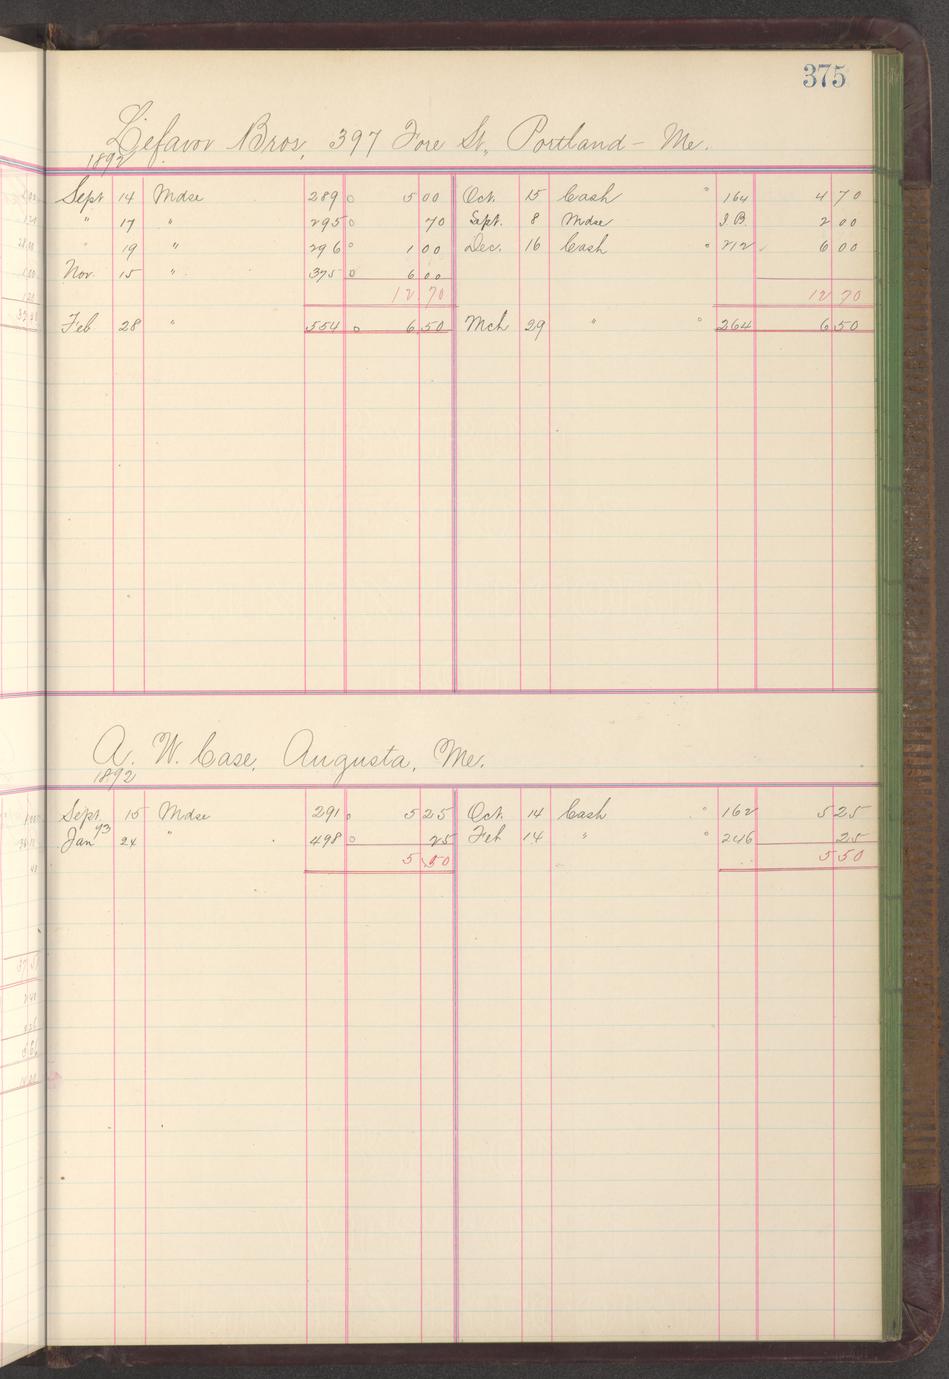 375
Lefavor Bros, 397 Fore St., Portland - Me.
1892
Sept 14 Mdse 289 5 00 Oct. 15 Cash " 164 4 70
" 17 " 295 70 Sept. 8 Mdse J.B. 2 00
" 19 " 296 1 00 Dec. 16 Cash " 212 6 00
Nov. 15 " 375 6 00
12 70 12 70
Feb 28 " 554 6 50 Mch 29 " " 264 6 50
A. W. Case, Augusta, Me.
1892
Sept. 15 Mdse 291 5 25 Oct. 14 Cash " 162 5 25
Jan 93 24 " 498 25 Feb 14 " " 246 25
5 50 5 50